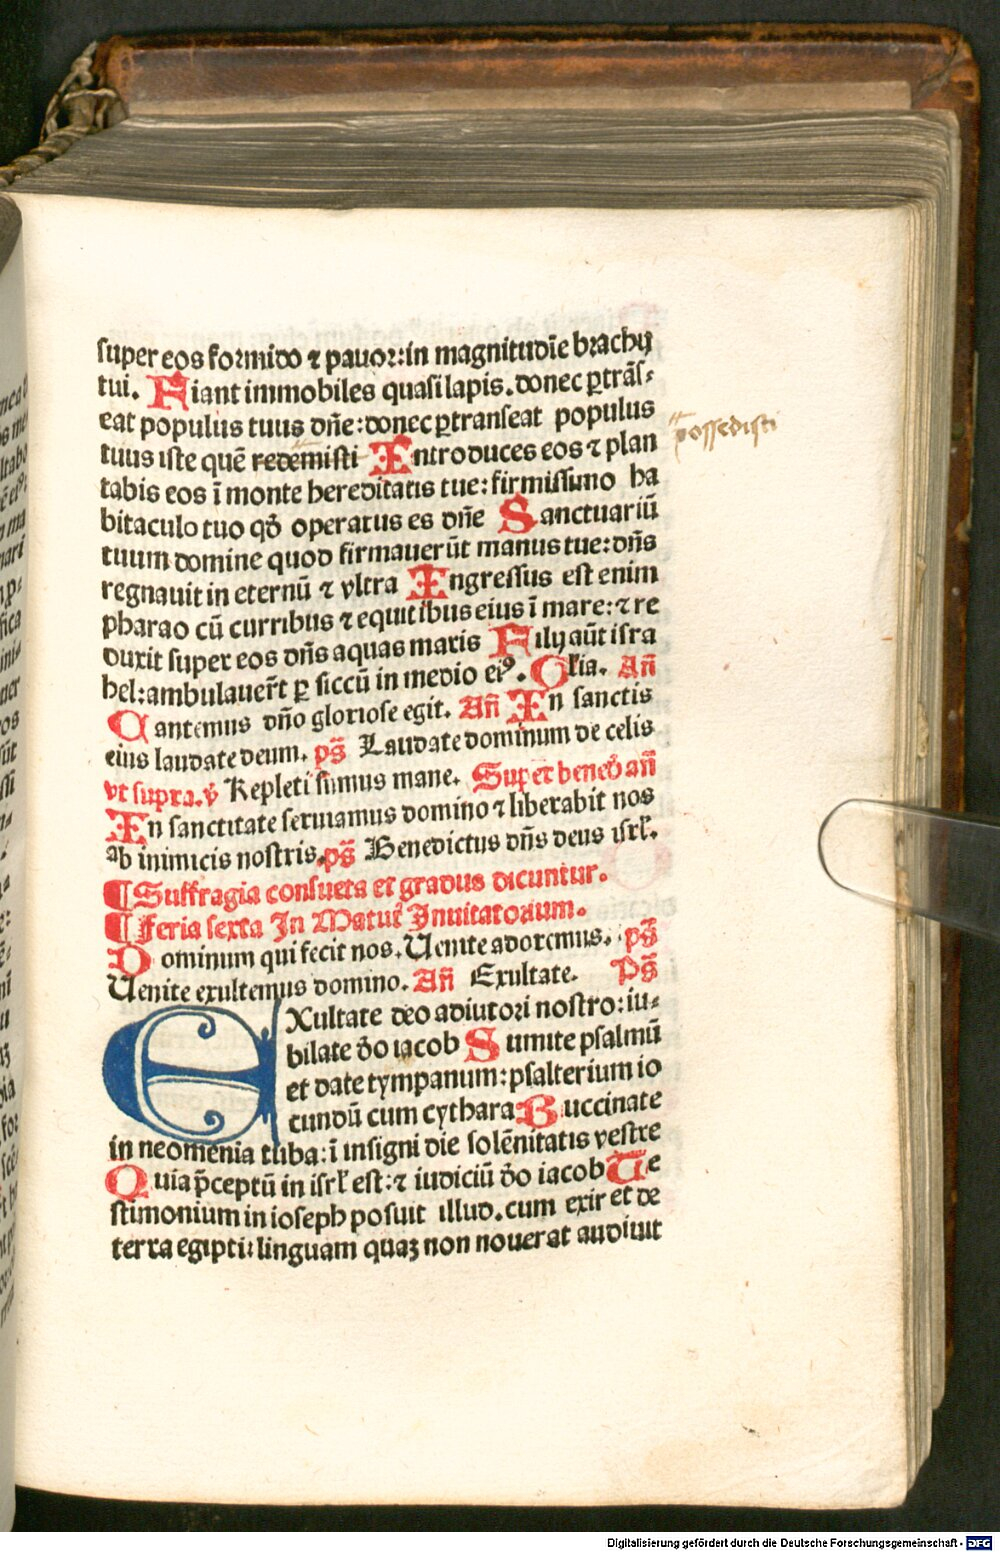 super eos formido ⁊ pauor: in magnitudīe brachij
tui. Fiant immobiles quasi lapis. donec ꝑtrāſ⸗
eat populus tuus dn̄e: donec ꝑtranseat populus
tuus iste quē redemisti Introduces eos ⁊ plan
possedisti
tabis eos ī monte hereditatis tue: firmissimo ha
bitaculo tuo qđ operatus es dn̄e Sanctuariū
tuum domine quod firmauerūt manus tue: dn̄s
regnauit in eternū ⁊ vltra Ingressus est enim
pharao cū curribus ⁊ equitibus eius ī mare: ⁊ re
duxit super eos dn̄s aquas maris Filij aūt isra
hel: ambulauer̄t ꝑ siccū in medio eiꝰ. Glīa. An̄
Cantemus dn̄o gloriose egit. An̄ In sanctis
eius laudate deum. ps̄ Laudate dominum de celis
vt supra. v̄ Repleti sumus mane. Super bened̄ an̄
In sanctitate seruiamus domino ⁊ liberabit nos
ab inimicis nostris. ps̄ Benedictus dn̄s deus isrl̄.
¶ Suffragia consueta et gradus dicuntur.
¶ Feria sexta In Matut̄ Inuitatorium.
Dominum qui fecit nos. Uenite adoremus. ps̄
Uenite exultemus domino. An̄ Exultate. Ps̄
EXultate deo adiutori nostro: iu⸗
bilate đo iacob Sumite psalmū
et date tympanum: psalterium io
cundū cum cythara Buccinate
in neomenia tuba: ī insigni die solēnitatis vestre
Quia p̄ceptū in isrl̄ est: ⁊ iudiciū đo iacob Te
stimonium in ioseph posuit illud. cum exir et de
terra egipti: linguam quaꝫ non nouerat audiuit
Digitalisierung gefördert durch die Deutsche Forschungsgemeinschaft - DFG